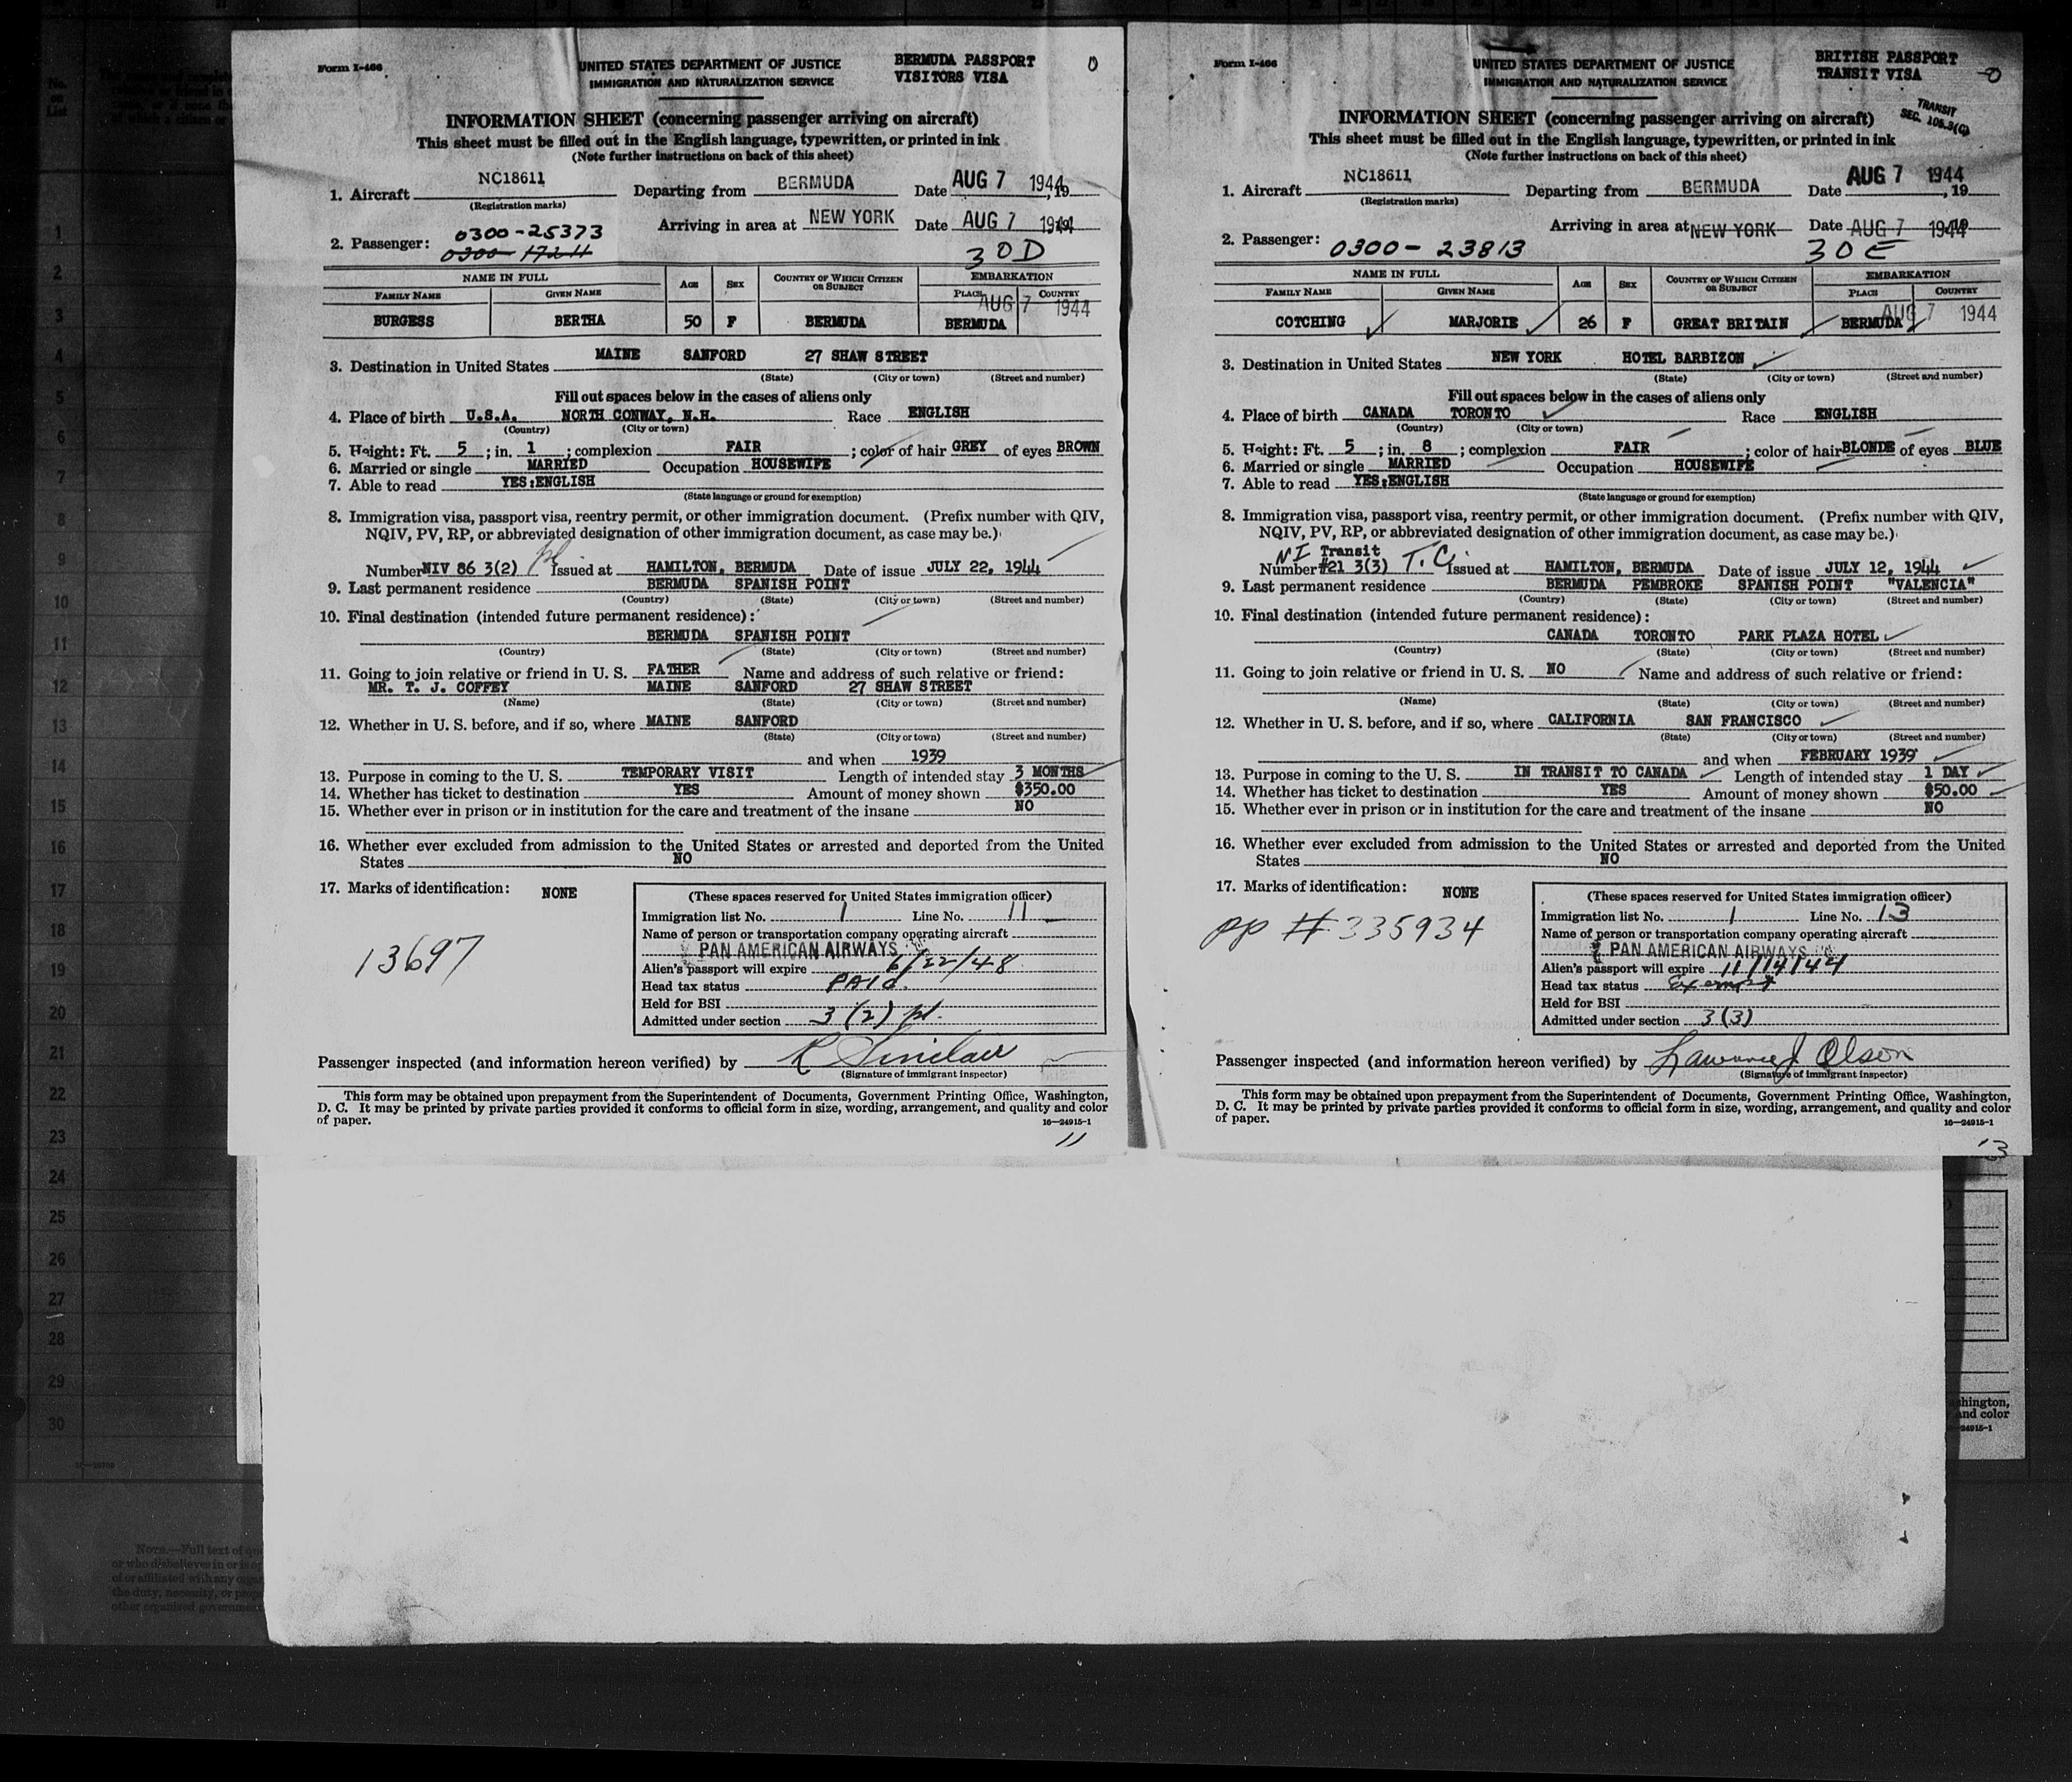 Form I-466
UNITED STATES DEPARTMENT OF JUSTICE
IMMIGRATION AND NATURALIZATION SERVICE
BERMUDA PASSPORT
VISITORS VISA
0
INFORMATION SHEET (concerning passenger arriving on aircraft)
This sheet must be filled out in the English language, typewritten, or printed in ink
(Note further instructions on back of this sheet)
1. Aircraft NC18611 Departing from BERMUDA Date AUG 7 1944, 19
(Registration marks)
Arriving in area at NEW YORK Date AUG 7 1944
2. Passenger: 0300-25373
0300-17211
30D
NAME IN FULL AGE SEX COUNTRY OF WHICH CITIZEN OR SUBJECT EMBARKATION
FAMILY NAME GIVEN NAME PLACE COUNTRY
AUG 7 1944
BURGESS BERTHA 50 F BERMUDA BERMUDA
3. Destination in United States MAINE SANFORD 27 SHAW STREET
(State) (City or town) (Street and number)
Fill out spaces below in the cases of aliens only
4. Place of birth U.S.A. NORTH CONWAY, N.H. Race ENGLISH
(Country) (City or town)
5. Height: Ft. 5 ; in. 1 ; complexion FAIR ; color of hair GREY of eyes BROWN
6. Married or single MARRIED Occupation HOUSEWIFE
7. Able to read YES:ENGLISH
(State language or ground for exemption)
8. Immigration visa, passport visa, reentry permit, or other immigration document. (Prefix number with QIV,
NQIV, PV, RP, or abbreviated designation of other immigration document, as case may be.)
Number NIV 86 3(2) pl Issued at HAMILTON, BERMUDA Date of issue JULY 22, 1944
9. Last permanent residence BERMUDA SPANISH POINT
(Country) (State) (City or town) (Street and number)
10. Final destination (intended future permanent residence):
BERMUDA SPANISH POINT
(Country) (State) (City or town) (Street and number)
11. Going to join relative or friend in U. S. FATHER Name and address of such relative or friend:
MR. T. J. COFFEY MAINE SANFORD 27 SHAW STREET
(Name) (State) (City or town) (Street and number)
12. Whether in U. S. before, and if so, where MAINE SANFORD
(State) (City or town) (Street and number)
and when 1939
13. Purpose in coming to the U. S. TEMPORARY VISIT Length of intended stay 3 MONTHS
14. Whether has ticket to destination YES Amount of money shown $350.00
15. Whether ever in prison or in institution for the care and treatment of the insane NO
16. Whether ever excluded from admission to the United States or arrested and deported from the United
States NO
17. Marks of identification: NONE
13697
(These spaces reserved for United States immigration officer)
Immigration list No. 1 Line No. 11
Name of person or transportation company operating aircraft
PAN AMERICAN AIRWAYS
Alien's passport will expire 6/22/48
Head tax status PAId.
Held for BSI
Admitted under section 3(2) pl.
Passenger inspected (and information hereon verified) by R Sinclair
(Signature of immigrant inspector)
This form may be obtained upon prepayment from the Superintendent of Documents, Government Printing Office, Washington,
D. C. It may be printed by private parties provided it conforms to official form in size, wording, arrangement, and quality and color
of paper.
16—24915-1
11
Form I-466
UNITED STATES DEPARTMENT OF JUSTICE
IMMIGRATION AND NATURALIZATION SERVICE
BRITISH PASSPORT
TRANSIT VISA
0
TRANSIT
SEC. 105.3(C)
INFORMATION SHEET (concerning passenger arriving on aircraft)
This sheet must be filled out in the English language, typewritten, or printed in ink
(Note further instructions on back of this sheet)
1. Aircraft NC18611 Departing from BERMUDA Date AUG 7 1944, 19
(Registration marks)
Arriving in area at NEW YORK Date AUG 7 1944
2. Passenger: 0300-23813
30E
NAME IN FULL AGE SEX COUNTRY OF WHICH CITIZEN OR SUBJECT EMBARKATION
FAMILY NAME GIVEN NAME PLACE COUNTRY
AUG 7 1944
COTCHING MARJORIE 26 F GREAT BRITAIN BERMUDA
3. Destination in United States NEW YORK HOTEL BARBIZON
(State) (City or town) (Street and number)
Fill out spaces below in the cases of aliens only
4. Place of birth CANADA TORONTO Race ENGLISH
(Country) (City or town)
5. Height: Ft. 5 ; in. 8 ; complexion FAIR ; color of hair BLONDE of eyes BLUE
6. Married or single MARRIED Occupation HOUSEWIFE
7. Able to read YES:ENGLISH
(State language or ground for exemption)
8. Immigration visa, passport visa, reentry permit, or other immigration document. (Prefix number with QIV,
NQIV, PV, RP, or abbreviated designation of other immigration document, as case may be.)
NI Transit
Number #21 3(3) T.C. Issued at HAMILTON, BERMUDA Date of issue JULY 12, 1944
9. Last permanent residence BERMUDA PEMBROKE SPANISH POINT "VALENCIA"
(Country) (State) (City or town) (Street and number)
10. Final destination (intended future permanent residence):
CANADA TORONTO PARK PLAZA HOTEL
(Country) (State) (City or town) (Street and number)
11. Going to join relative or friend in U. S. NO Name and address of such relative or friend:
(Name) (State) (City or town) (Street and number)
12. Whether in U. S. before, and if so, where CALIFORNIA SAN FRANCISCO
(State) (City or town) (Street and number)
and when FEBRUARY 1939
13. Purpose in coming to the U. S. IN TRANSIT TO CANADA Length of intended stay 1 DAY
14. Whether has ticket to destination YES Amount of money shown $50.00
15. Whether ever in prison or in institution for the care and treatment of the insane NO
16. Whether ever excluded from admission to the United States or arrested and deported from the United
States NO
17. Marks of identification: NONE
PP # 335934
(These spaces reserved for United States immigration officer)
Immigration list No. 1 Line No. 13
Name of person or transportation company operating aircraft
PAN AMERICAN AIRWAYS
Alien's passport will expire 11/14/44
Head tax status Exempt
Held for BSI
Admitted under section 3(3)
Passenger inspected (and information hereon verified) by Lawrence J. Olson
(Signature of immigrant inspector)
This form may be obtained upon prepayment from the Superintendent of Documents, Government Printing Office, Washington,
D. C. It may be printed by private parties provided it conforms to official form in size, wording, arrangement, and quality and color
of paper.
16—24915-1
13
No.
on
List
1
2
3
4
5
6
7
8
9
10
11
12
13
14
15
16
17
18
19
20
21
22
23
24
25
26
27
28
29
30
NOTE.—Full text of
or who disbelieves in or is
of or affiliated with any
the duty, necessity, or
other organized government
Washington,
and color
24915-1